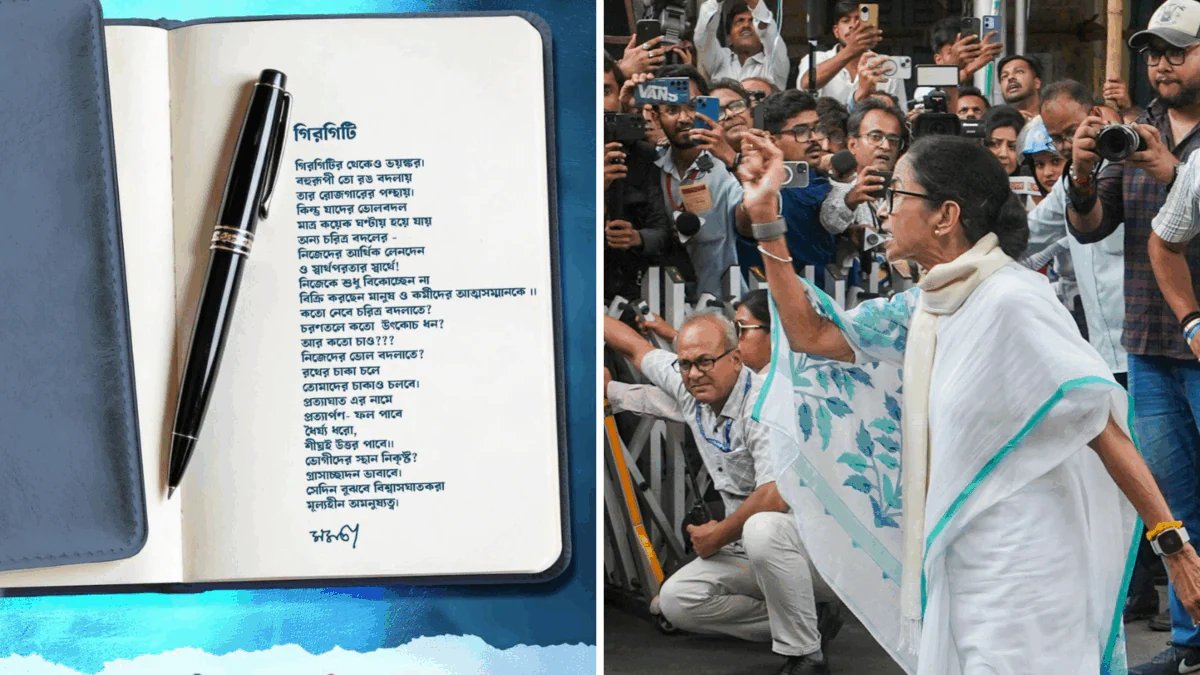 গিরগিটি
গিরগিটির থেকেও ভয়ঙ্কর।
বহুরূপী তো রঙ বদলায়
তার রোজগারের পন্থায়।
কিন্তু যাদের ভোলবদল
মাত্র কয়েক ঘণ্টায় হয়ে যায়
অন্য চরিত্র বদলের -
নিজেদের আর্থিক লেনদেন
ও স্বার্থপরতার স্বার্থে!
নিজেকে শুধু বিকোচ্ছেন না
বিক্রি করছেন মানুষ ও কর্মীদের আত্মসম্মানকে ।।
কতো নেবে চরিত্র বদলাতে?
চরণতলে কতো উৎকোচ ধন?
আর কতো চাও???
নিজেদের ভোল বদলাতে?
রথের চাকা চলে
তোমাদের চাকাও চলবে।
প্রত্যাঘাত এর নামে
প্রত্যার্পণ- ফল পাবে
ধৈর্য্য ধরো,
শীঘ্রই উত্তর পাবে।।
ভোগীদের স্থান নিকৃষ্ট?
গ্রাসাচ্ছাদন ভাবাবে।
সেদিন বুঝবে বিশ্বাসঘাতকরা
মূল্যহীন অমনুষ্যত্ব।
মমতা
VANS